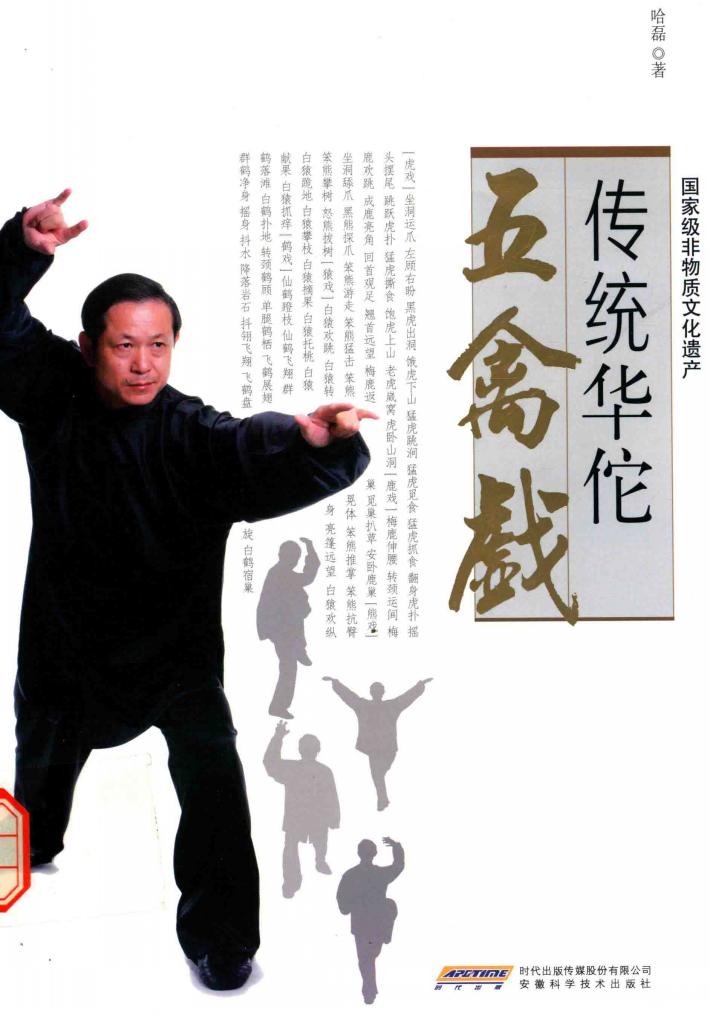 哈磊 ◎ 著
国家级非物质文化遗产
传统华佗
五禽戲
|虎戏|坐洞运爪 左顾右盼 黑虎出洞 饿虎下山 猛虎跳涧 猛虎觅食 猛虎抓食 翻身虎扑 摇
头摆尾 跳跃虎扑 猛虎撕食 饱虎上山 老虎崴窝 虎卧山洞|鹿戏|梅鹿伸腰 转颈运闾 梅
鹿欢跳 成鹿亮角 回首观足 翘首远望 梅鹿返巢 觅巢扒草 安卧鹿巢|熊戏|
坐洞舔爪 黑熊探爪 笨熊游走 笨熊猛击 笨熊晃体 笨熊推掌 笨熊抗臀
笨熊攀树 怒熊拔树|猿戏|白猿欢跳 白猿转身 亮蓬远望 白猿欢纵
白猿跪地 白猿攀枝 白猿摘果 白猿托桃 白猿
献果 白猿抓痒|鹤戏|仙鹤蹬枝 仙鹤飞翔 群
鹤落滩 白鹤扑地 转颈鹤顾 单腿鹤栖 飞鹤展翅
群鹤净身 摇身 抖水 降落岩石 抖翎飞翔 飞鹤盘旋 白鹤宿巢
APGTIME
时代出版
时代出版传媒股份有限公司
安徽科学技术出版社